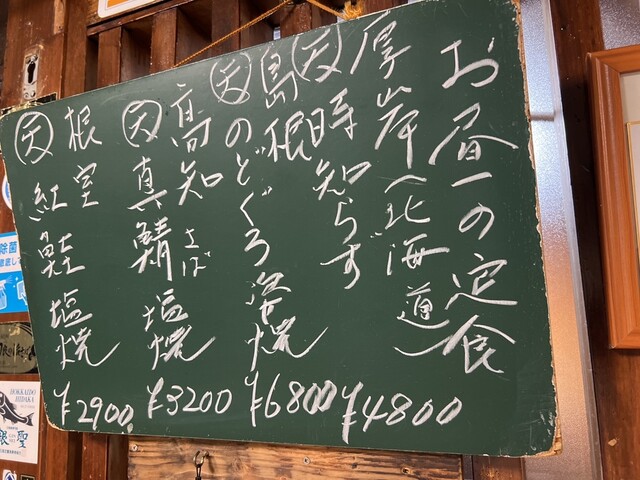 お昼の定食
厚岸(北海道)
㊝時知らず ¥4800
島根
㊝のどぐろ塩焼 ¥6800
高知
㊝真鯖さば塩焼 ¥3200
根室
㊝紅鮭塩焼 ¥2900
除菌
HOKKAIDO
HIDAKA
銀聖